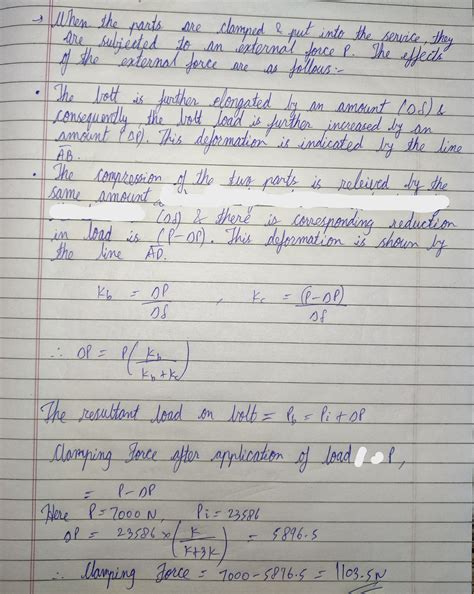 → When the parts are clamped & put into the service, they
are subjected to an external force P. The effects
of the external force are as follows:-
• The bolt is further elongated by an amount (Δδ) &
consequently the bolt load is further increased by an
amount (ΔP). This deformation is indicated by the line
AB.
• The compression of the two parts is releived by the
same amount
(Δδ) & there is corresponding reduction
in load is (P-ΔP). This deformation is shown by
the line AD.
Kb = ΔP/Δδ , Kc = (P-ΔP)/Δδ
∴ ΔP = P(Kb/(Kb+Kc))
The resultant load on bolt = Pb = Pi + ΔP
Clamping Force after application of load P,
= P-ΔP
Here P = 7000 N, Pi = 23586
ΔP = 23586 × (K/(K+3K)) = 5896.5
∴ Clamping Force = 7000-5896.5 = 1103.5N